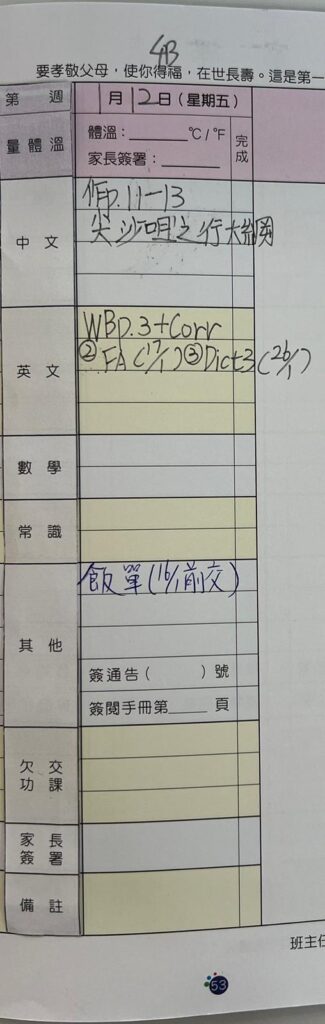 4B
要孝敬父母，使你得福，在世長壽。這是第一
第 週
1月12日(星期五)
量體溫
體溫：______°C/°F
家長簽署：______
完成
中文
作P.11-13
尖沙咀之行大綱
英文
WBP.3+Corr
② FA (17/1) ③ Dict3 (26/1)
數學
常識
其他
飯單(16/1前交)
簽通告( )號
簽閱手冊第____頁
欠交功課
家長簽署
備註
班主任
53